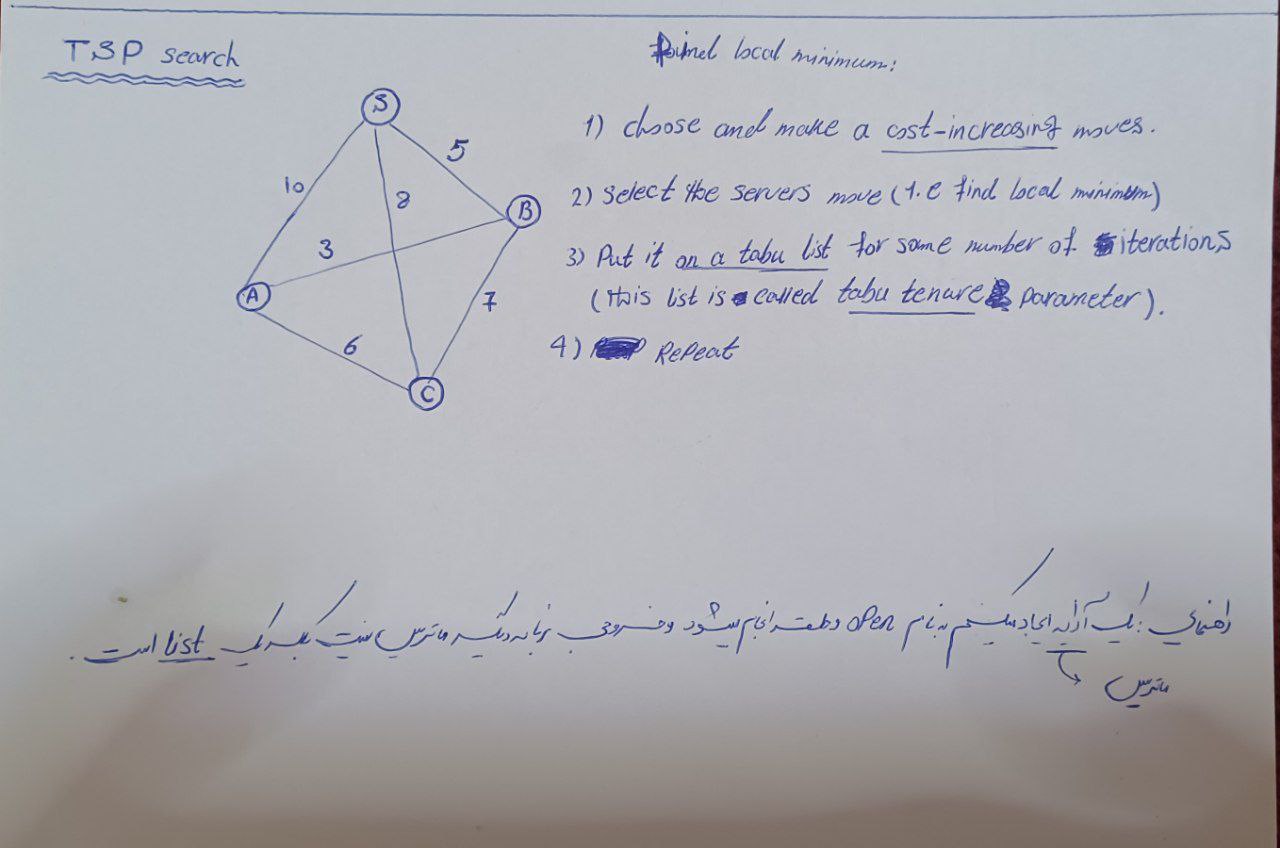 TSP search
S
10
5
8
B
3
A
7
6
C
Find local minimum:
1) choose and make a cost-increasing moves.
2) Select the servers move (i.e find local minimum)
3) Put it on a tabu list for some number of iterations
(this list is called tabu tenure parameter).
4) Repeat
راهنمایی: یک آرایه ایجاد میکنیم به نام open و انجام میشود و خروجی برنامه دیگه ماتریس نیست بلکه یک list است.
ماتریس